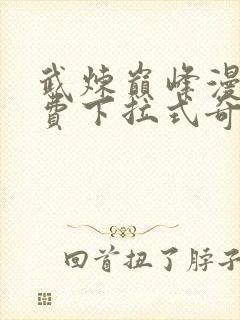 武炼巅峰漫
费下拉式奇
回首扭了脖子